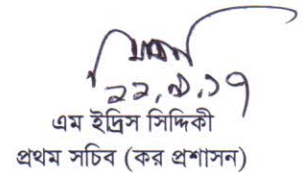 ২২.৯.১৭
এম ইদ্রিস সিদ্দিকী
প্রথম সচিব (কর প্রশাসন)